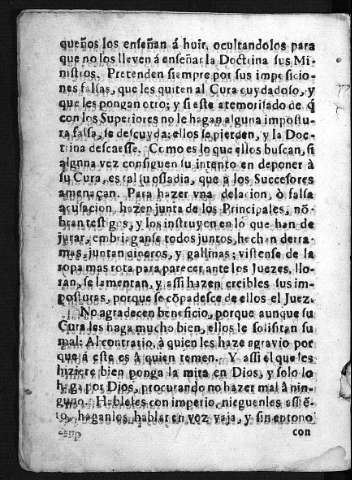 queños los enseñan á huir, ocultandolos para
que no los lleven á enseñar la Doctrina sus Mi-
nistros. Pretenden siempre por sus imposicio-
nes falsas, que les quiten al Cura cuydadoso, y
que les pongan otro; y si este atemorisado de q̃
con los Superiores no le hagan alguna impostu-
ra falsa, se descuyda; ellos se pierden, y la Doc-
trina descaesse. Como es lo que ellos buscan, si
algnna vez consiguen su intento en deponer à
su Cura, es tal su ossadia, que a los Succesores
amenaçan. Para hazer vna delacion, ò falsa
acusacion, hazen junta de los Principales, nõ-
bran testigos, y los instruyen en lo que han de
jurar, embriaganse todos juntos, hechan derra-
mas, juntan dineros, y gallinas; vistense de la
ropa mas rota para parecer ante los Juezes, llo-
ran, se lamentan, y assi hazen creibles sus im-
posturas, porque se cõpadesce de ellos el Juez.
No agradecen beneficio, porque aunque su
Cura les haga mucho bien, ellos le solisitan su
mal: Al contratio, à quien les haze agravio por
que á este es à quien temen. Y assi el que les
hiziere bien ponga la mita en Dios, y solo lo
haga por Dios, procurando no hazer mal à nin-
guno. Hableles con imperio, nieguenles assẽ-
to, haganlos hablar en voz vaja, y sin entono
con